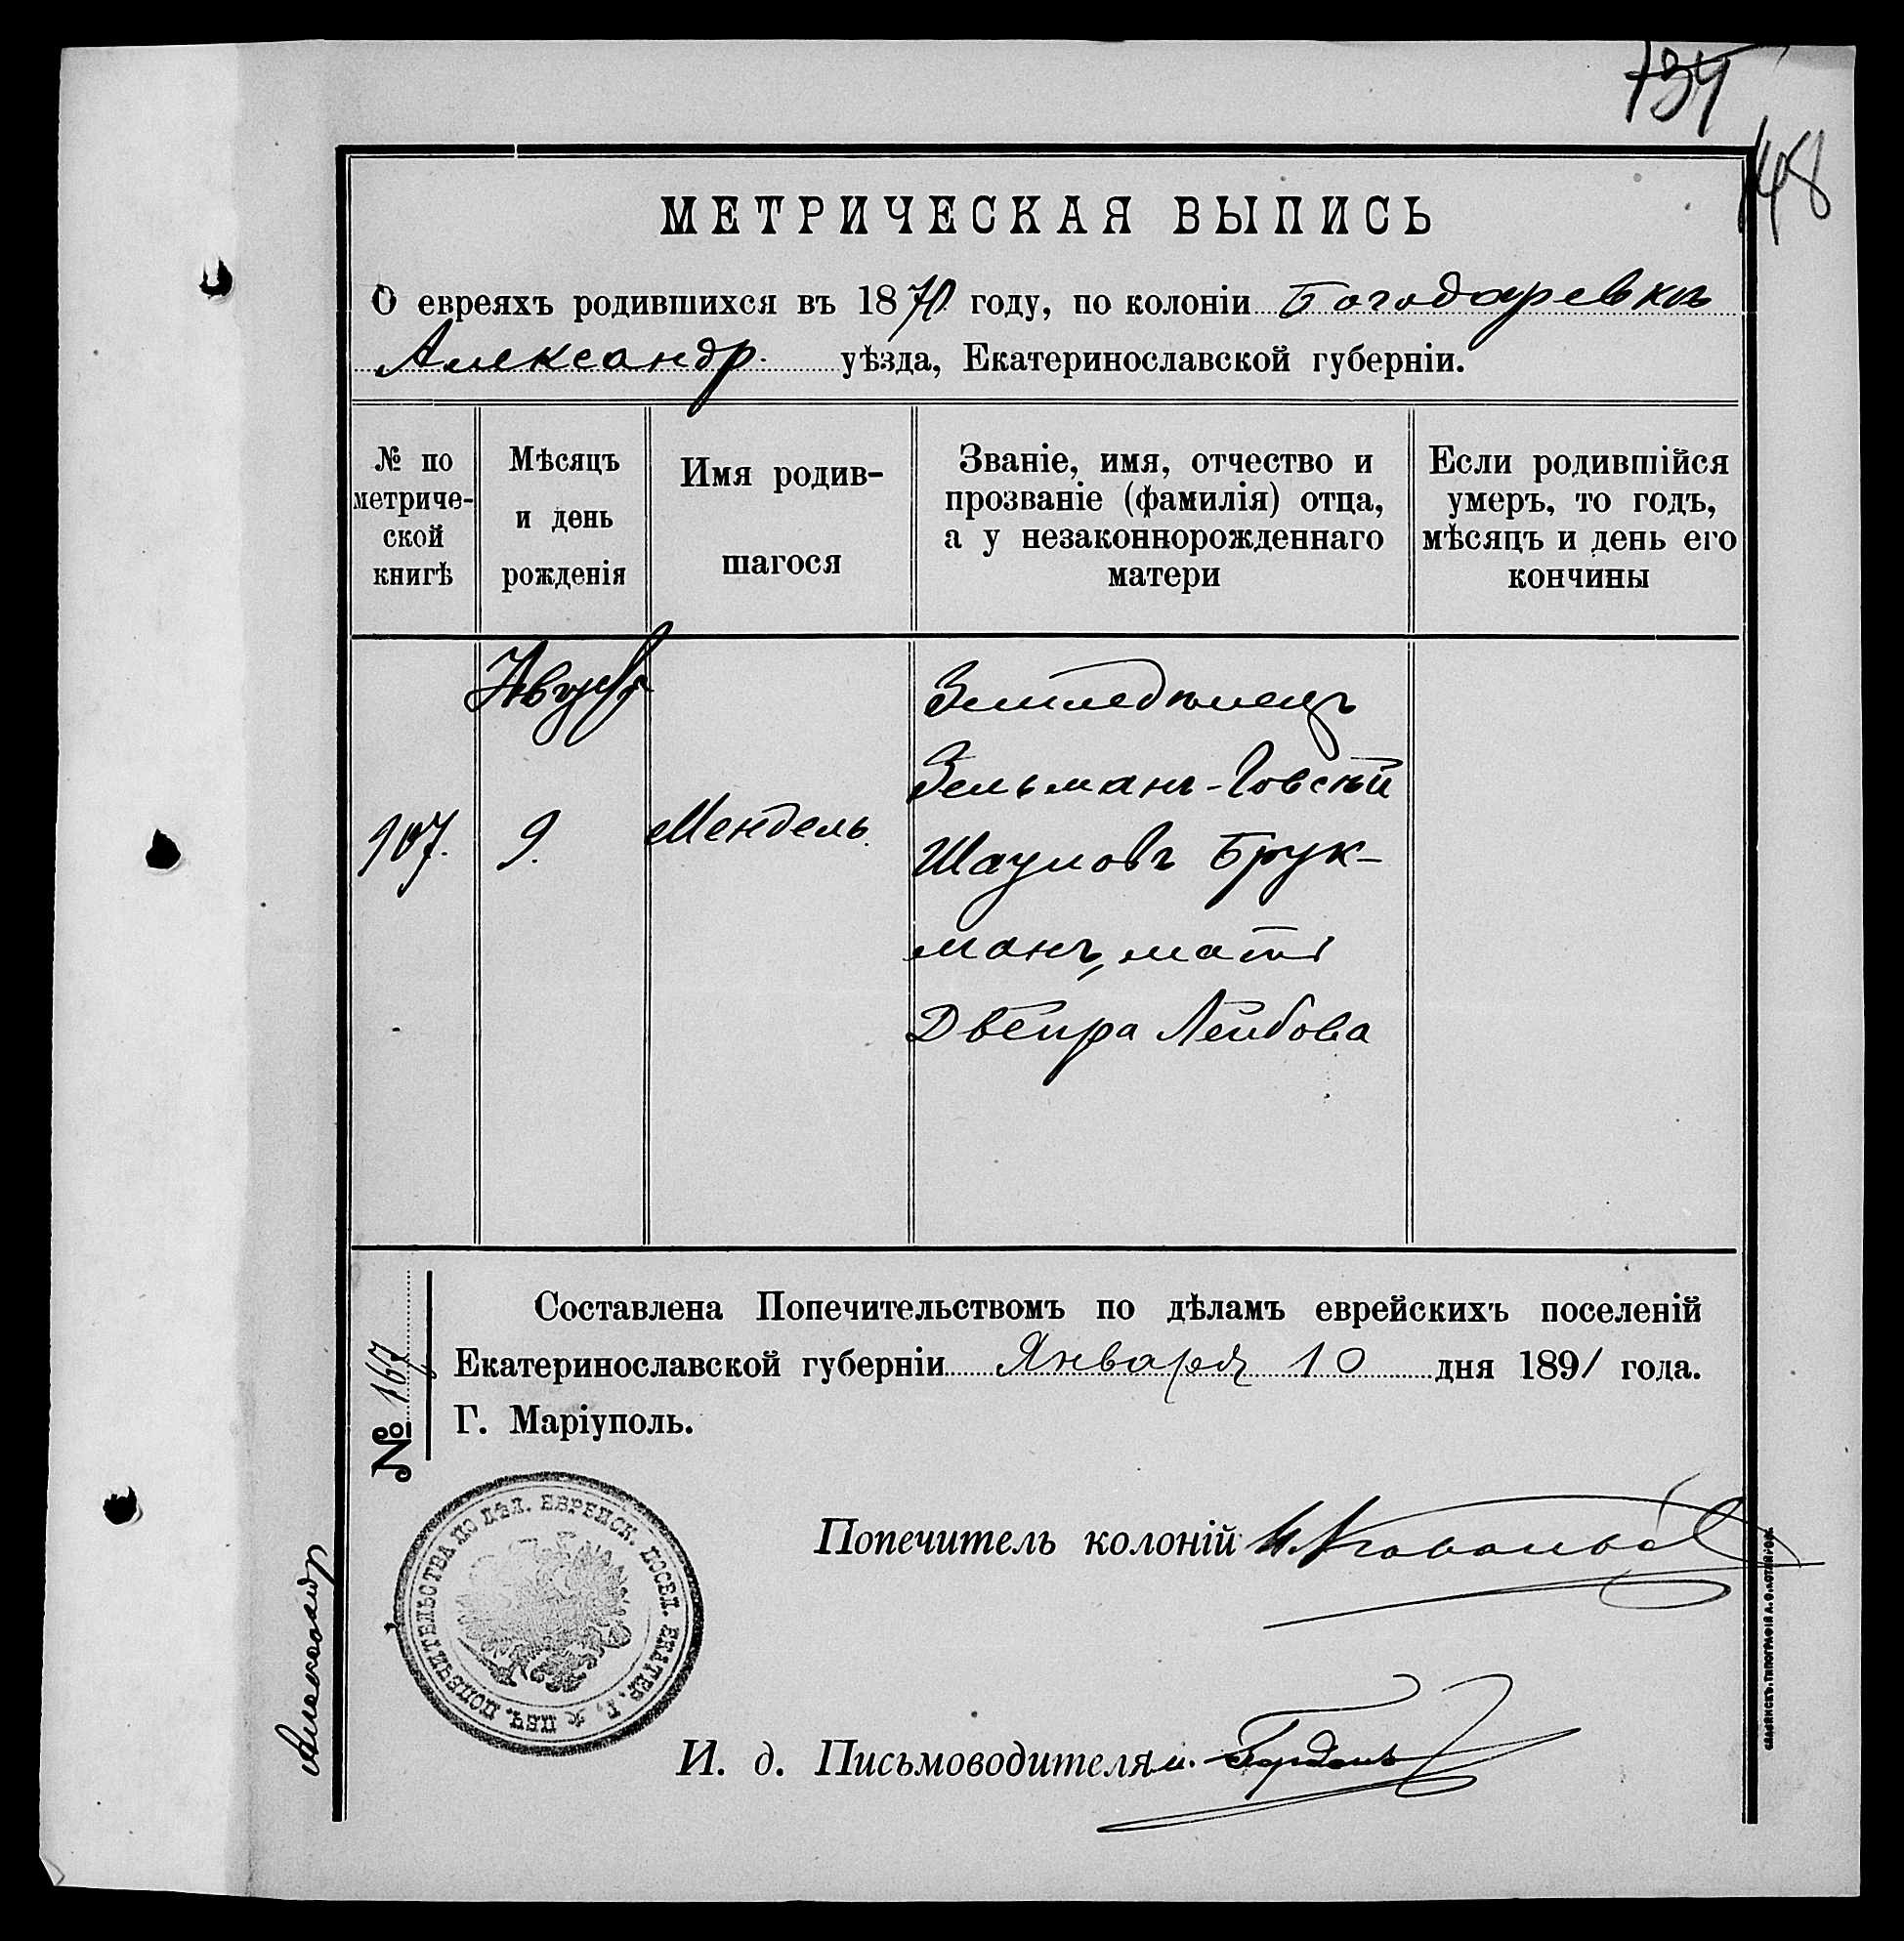 734
148
МЕТРИЧЕСКАЯ ВЫПИСЬ
О евреяхъ родившихся въ 1870 году, по колоніи Богодаревкѣ
Александр. уѣзда, Екатеринославской губерніи.
№ по метриче-ской книгѣ
Мѣсяцъ и день рожденія
Имя родив-шагося
Званіе, имя, отчество и прозваніе (фамилія) отца, а у незаконнорожденнаго матери
Если родившійся умеръ, то годъ, мѣсяцъ и день его кончины
107.
Август
9.
Мендель.
Земледѣлецъ
Зельманъ-Іовсей
Шауловъ Брук-
манъ, мать
Двейра Лейбова
Составлена Попечительствомъ по дѣламъ еврейскихъ поселеній
Екатеринославской губерніи Января 10 дня 1891 года.
Г. Маріуполь.
№ 167
ПЕЧ. ПОПЕЧИТЕЛЬСТВА ПО ДѢЛ. ЕВРЕЙСК. ПОСЕЛ. ЕКАТЕР. Г.
Попечитель колоній
И. д. Письмоводителя Гордонъ
Александр